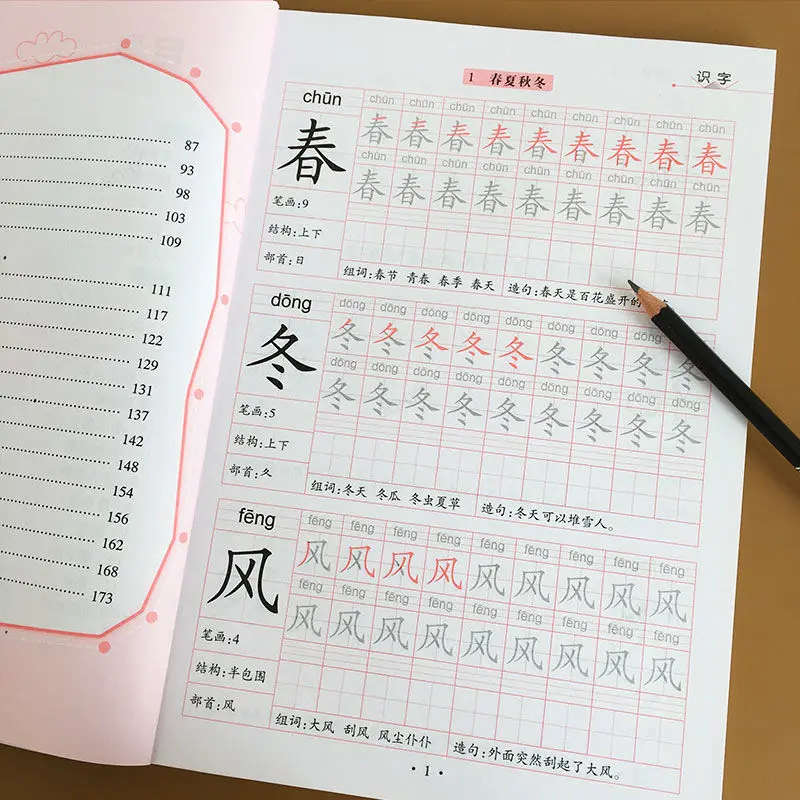 87
93
98
103
109
111
117
122
129
131
137
142
148
154
156
162
168
173
识字
1 春夏秋冬
chūn chūn chūn chūn chūn chūn chūn chūn chūn chūn
春 春 春 春 春 春 春 春 春 春
chūn chūn chūn chūn chūn chūn chūn chūn chūn
春 春 春 春 春 春 春 春 春
笔画:9
结构:上下
部首:日
组词:春节 青春 春季 春天 造句:春天是百花盛开的
dōng dōng dōng dōng dōng dōng dōng dōng dōng dōng
冬 冬 冬 冬 冬 冬 冬 冬 冬 冬
dōng dōng dōng dōng dōng dōng dōng dōng dōng
冬 冬 冬 冬 冬 冬 冬 冬 冬
笔画:5
结构:上下
部首:夂
组词:冬天 冬瓜 冬虫夏草 造句:冬天可以堆雪人。
fēng fēng fēng fēng fēng fēng fēng fēng fēng fēng
风 风 风 风 风 风 风 风 风 风
fēng fēng fēng fēng fēng fēng fēng fēng fēng
风 风 风 风 风 风 风 风 风
笔画:4
结构:半包围
部首:风
组词:大风 刮风 风尘仆仆 造句:外面突然刮起了大风。
·1·